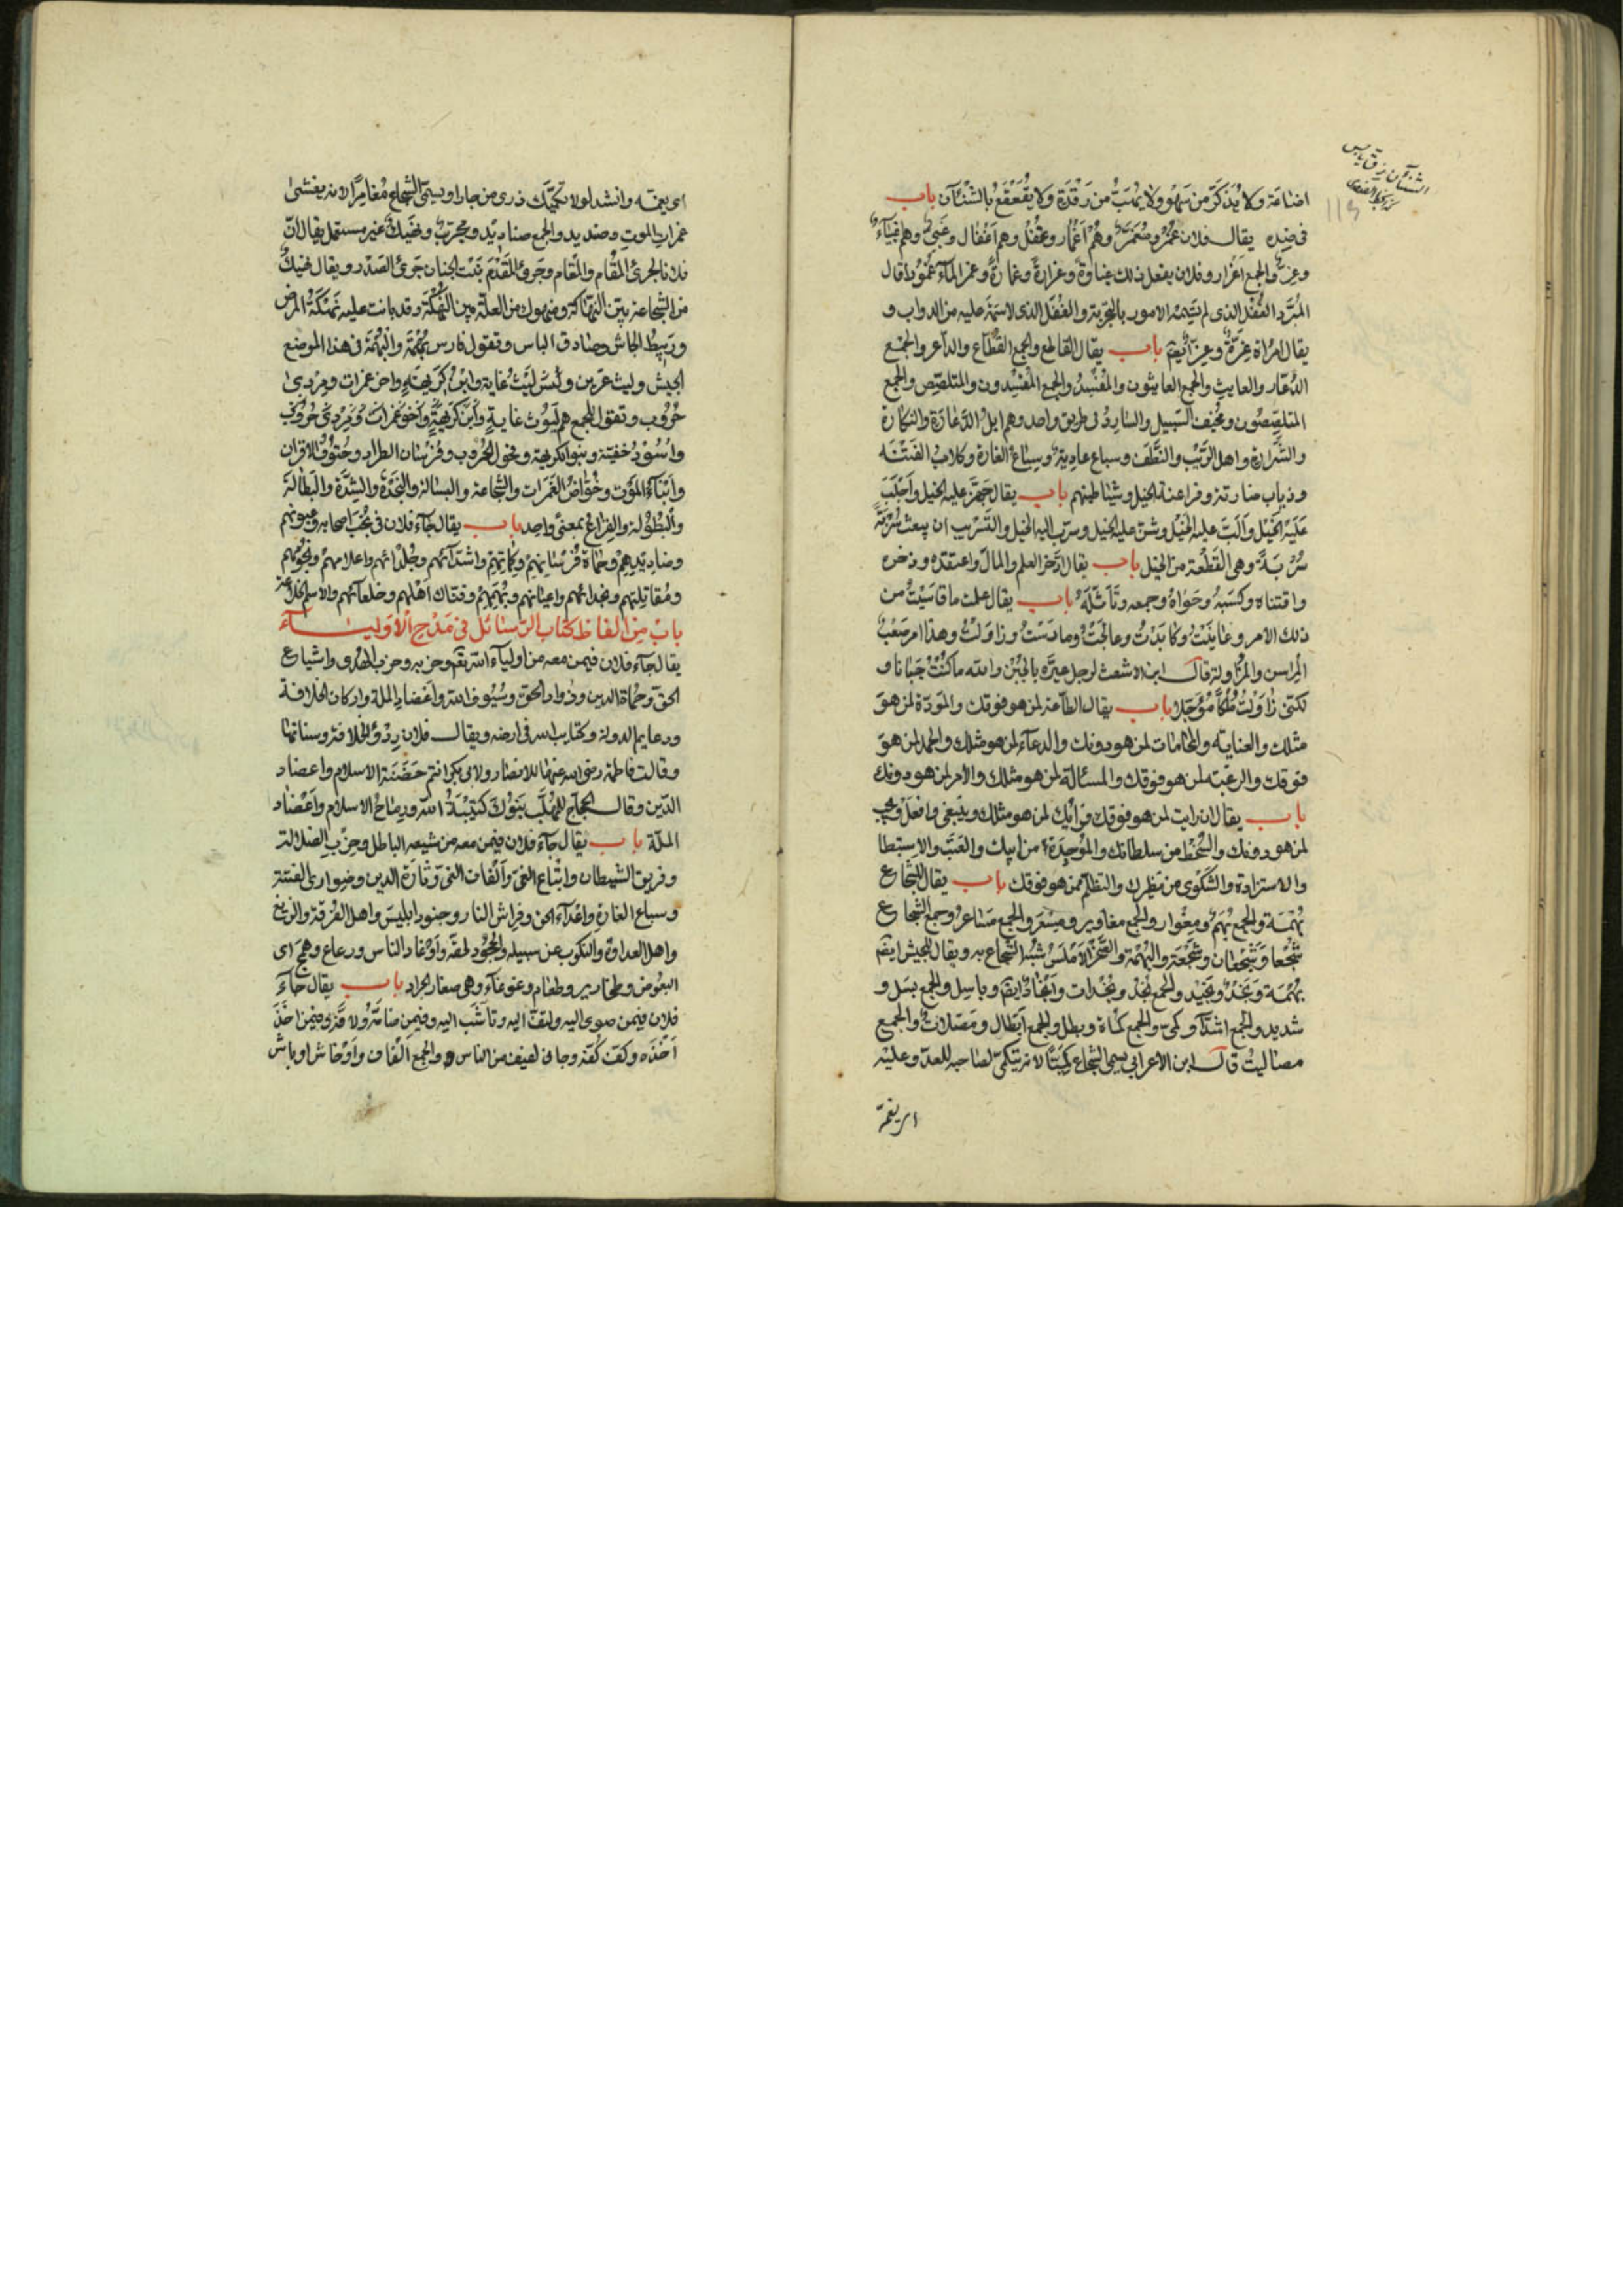 اضاعة ولا يُذكَّر من سَهْو ولا يُنبَّهُ من رَقْدَة ولا يُقَعْقَعُ بالشَّنْآن باب
فى ضده يقال فلان غُمْر وهُمْ اَغْمار وغُفْل وهم اَغْفال وغبىّ وهم اغبياء
وغِرٌّ والجمع اَغْرار وفلان يفعل ذلك غباوةً وغرارةً وغمارةً قال
المُبَرّد الغُفْل الذى لم تَسِمْه الامور بالتجربة والغُفْل الذى لا سِمَة عليه من الدواب و
يقال امراة غِرَّةٌ باب يقال القاطع والجمع القُطَّاع والداعر والجمع
الدُّعّار والعايث والجمع العايثون والمُفْسِدُ والجمع المُفْسِدون والمتلصِّص والجمع
المتلصِّصُون ومخيف السّبيل والساردُ فى طريق واحد وهم اهلُ الدَّعارَة والنكارة
والشَّرارة واهل الرَّيْب والنَّطَف وسباع عادية وسباع الغارة وكلاب الفتنة
وذياب ضارية وفراعنة الخيل وشياطينهم باب يقال جهَّز عليه الخيل واَجْلَبَ
عَلَيْه الخَيْل واَلَّبَ عليه الخيل وشنّ عليه الخيل وسرّب اليه الخيل والتَّسْريب ان يبعث سُرْبَةً
سُرْبَةً وهى القِطْعة من الخيل باب يقال ادّخر العلم والمال واعتقده وذخره
واقتناه وكسبَهُ وحَواهُ وجمعه وتَأَثَّلَهُ باب يقال علمت ما قاسَيْتُ من
ذلك الامر وعانَيْتُ وكابَدْتُ وعالَجْتُ ومارَسْتُ وزاوَلْتُ وهذا امر صَعْبُ
المِراس والمُزاولة قال ابن الاشعث لرجل عيَّره بالجُبْن والله ما كُنْتُ جَبانا و
لكنى زاوَلْتُ مُلْكًا مُؤَجَّلا باب يقال الطاعة لمن هو فوقك والمَودّة لمن هو
مثلك والعناية والمحاماة لمن هو دونك والدعاء لمن هو مثلك والحمد لمن هو
فوقك والرغبَة لمن هو فوقك والمسئالة لمن هو مثلك والامر لمن هو دونك
باب يقال ان رايت لمن هو فوقك فرأيك لمن هو مثلك وينبغى وافعل ويجب
لمن هو دونك والسُّخْط من سلطانك والمَوْجِدَة من ابيك والعَتْب والاستبطا
والاستزادة والشَّكْوى من نظيرك والتظلّم ممن هو فوقك باب يقال للشجاع
بُهْمَة والجمع بُهَم ومِغْوار والجمع مغاوير ومِسْعَر والجمع مَساعر وجمع الشجاع
شُجْعا وشُجْعان وشَجْعَة والبُهْمَة الصَّخْرة الاَمْلَس شُبِّه الشّجاع به ويقال للجيش ايضا
بُهْمَة ونَجُدٌ ونَجِيد والجمع نُجُد ونُجُدات واَنْجادٌ ايضا وباسِل والجمع بسَل و
شديد والجمع اشدّاء وكمىّ والجمع كماة وبطل والجمع اَبطال ومَصْلات والجمع
مصاليت قال ابن الاعرابى يسمى الشجاع كَمِيًّا لانه يتكمّى لصاحبه للعدوّ وعليه
اى يقمعه
وانشد لولا تكمّيك ذرى من جارا ويسمّى الشجاع مُغامِرًا لانه يغشى
غمرات الموت وصنديد والجمع صناديد ومجرّب ونَهِيك غير مستعمل يقال انّ
فلانا لجرئ المُقام والمَقام وجَرئ المُقْدَم ثَبْت الجنان جَرئ الصّدر ويقال نهيك
من الشجاعة بيّن النَّهاكة ومنهوك من العلة بيّن النُّهْكَة وقد بانت عليه نَهْكَةُ المرض
ورَبِيطُ الجاش وصادق الباس وتقول فارس بُهْمَة والبُهْمَة فى هذا الموضع
الجيش وليث عرين ولَيْثُ غابة وابن كَرِيهَة واخو غمرات ومِرْدى
حُرُوب وتقول للجمع هم لُيُوث غابة واَبناء كَرِيهَةٍ واخو غمرات ومِرْدى حُرُوب
واُسُود خَفِيّة وبنو الكريهة وفحول الحُرُوب وفُرْسان الطراد وحُتُوفُ الاقران
واَبْناءُ المَوْت وخُوّاضُ الغَمَرات والشجاعة والبسالة والنَّجْدَةُ والشِدَّة والبَطالة
والبُطُولة والفِراغ بمعنًى واحد باب يقال جاء فلان فى نُخَب اصحابه وعيونهم
وصناديدهم وحُماة فُرْسانهم وكُماتِهم واشدّائهم وجُلَدائهم واعلامهم ونجومهم
ومُقاتِلَتهم ونجدائهم واعيانهم وبُهَمِهِمْ وفُتّاك اَهْلهم وخلعائهم والاسم الخلاعة
باب من الفاظ كتاب الرّسائل فى مَدْح الاَوْلياء
يقال جاء فلان فيمن معه من اولياء الله وحزبه وحزب الهدى واشياع
الحقّ وحُماة الدين وذُوّاد الحقّ وسُيُوف الله واَعْضاد الملة واركان الخلافة
ودعايم الدولة وكتايب الله فى ارضه ويقال فلان رِدْؤُ الخلافة وسنانها
وقالت فاطمة رضى الله عنها للانصار ولابى بكر انتم حَضَنَة الاسلام واعضاد
الدّين وقال الحجاج للمُهَلَّب بَنُوكَ كتيبَةُ الله ورماحُ الاسلام واَعْضاد
الملّة باب يقال جاء فلان فيمن معه من شيعه الباطل وحِزْب الضلالة
وفريق الشيطان واتْباع الغىّ واَلْفاف الغىّ وثارَة الدين وضوارى الفتنة
وسباع الغارة واعداء الحق وفِراش النار وجنود ابليس واهل الفُرْقة والزيغ
واهل العداوة والنكوب عن سبيله والجُحُود لحقّه واَوْغاد الناس ورعاع وهَمَج اى
البَعُوض وطحارير وطغام وغوغاء وهى صغار الجراد باب يقال جاء
فلان فيمن ضوى اليه ولفّ اليه وتأَشَّب اليه وفيمن ضامَّهُ ولا فَّهُ وفيمن اَخَذَ
اَخْذَه وكفّ كُفّه وجا فى لفيف من الناس والجمع اَلْفاف واَوْخاش اوباش